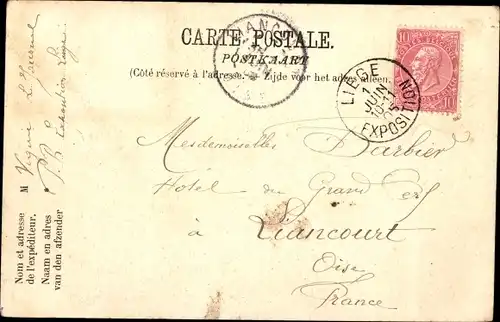 CARTE POSTALE.
POSTKAART
(Côté réservé à l'adresse. — Zijde voor het adres alleen.)
10 10
LIEGE
1
JUIN
10-11
05
EXPOSITION
Mesdemoiselles Barbier
Hôtel du Grand Cerf
à Liancourt
Oise
France
M
Nom et adresse
de l'expéditeur.
Naam en adres
van den afzender